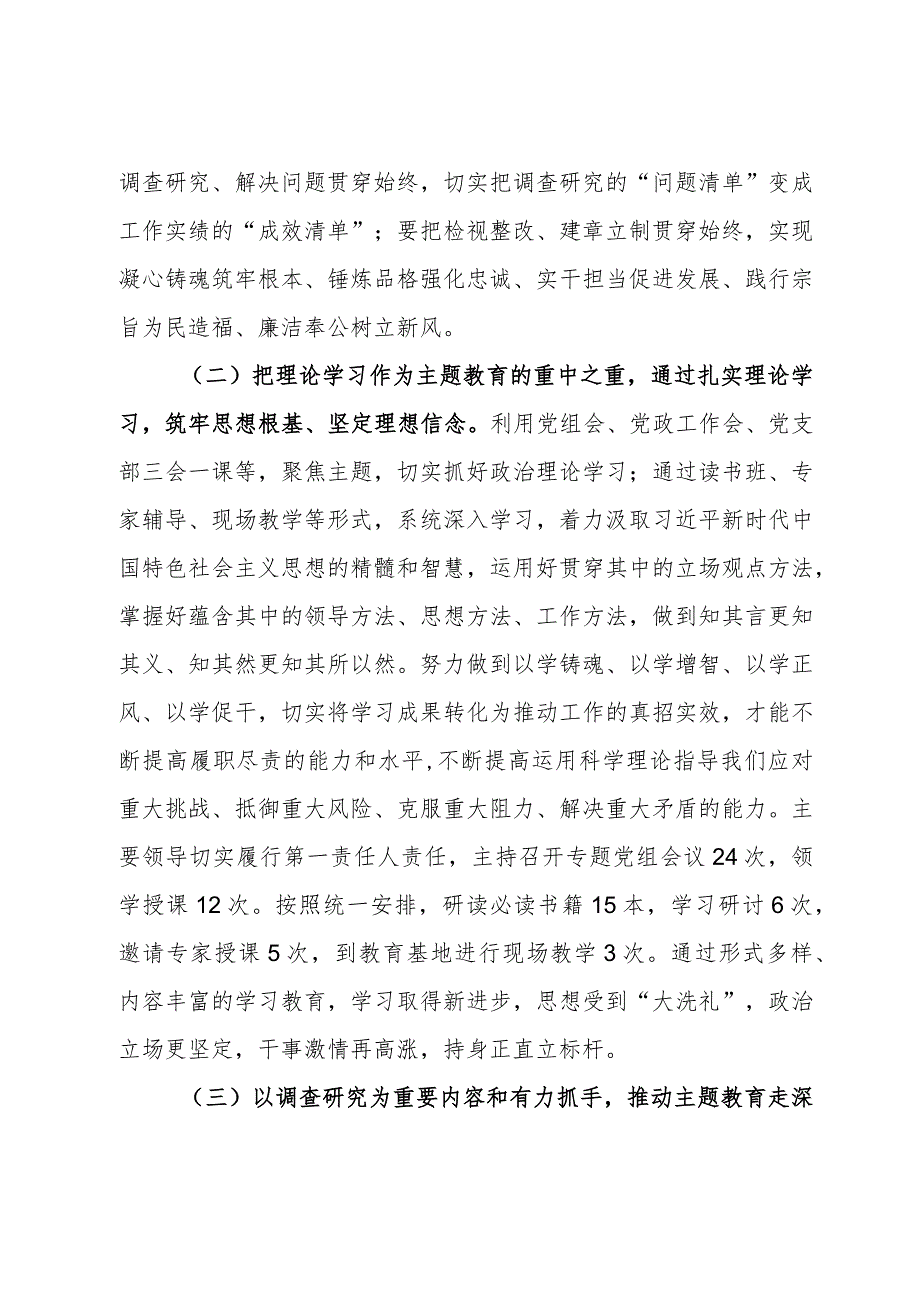 调查研究、解决问题贯穿始终，切实把调查研究的“问题清单”变成
工作实绩的“成效清单”；要把检视整改、建章立制贯穿始终，实现
凝心铸魂筑牢根本、锤炼品格强化忠诚、实干担当促进发展、践行宗
旨为民造福、廉洁奉公树立新风。
（二）把理论学习作为主题教育的重中之重，通过扎实理论学
习，筑牢思想根基、坚定理想信念。利用党组会、党政工作会、党支
部三会一课等，聚焦主题，切实抓好政治理论学习；通过读书班、专
家辅导、现场教学等形式，系统深入学习，着力汲取习近平新时代中
国特色社会主义思想的精髓和智慧，运用好贯穿其中的立场观点方法，
掌握好蕴含其中的领导方法、思想方法、工作方法，做到知其言更知
其义、知其然更知其所以然。努力做到以学铸魂、以学增智、以学正
风、以学促干，切实将学习成果转化为推动工作的真招实效，才能不
断提高履职尽责的能力和水平,不断提高运用科学理论指导我们应对
重大挑战、抵御重大风险、克服重大阻力、解决重大矛盾的能力。主
要领导切实履行第一责任人责任，主持召开专题党组会议 24 次，领
学授课 12 次。按照统一安排，研读必读书籍 15 本，学习研讨 6 次，
邀请专家授课 5 次，到教育基地进行现场教学 3 次。通过形式多样、
内容丰富的学习教育，学习取得新进步，思想受到“大洗礼”，政治
立场更坚定，干事激情再高涨，持身正直立标杆。
（三）以调查研究为重要内容和有力抓手，推动主题教育走深